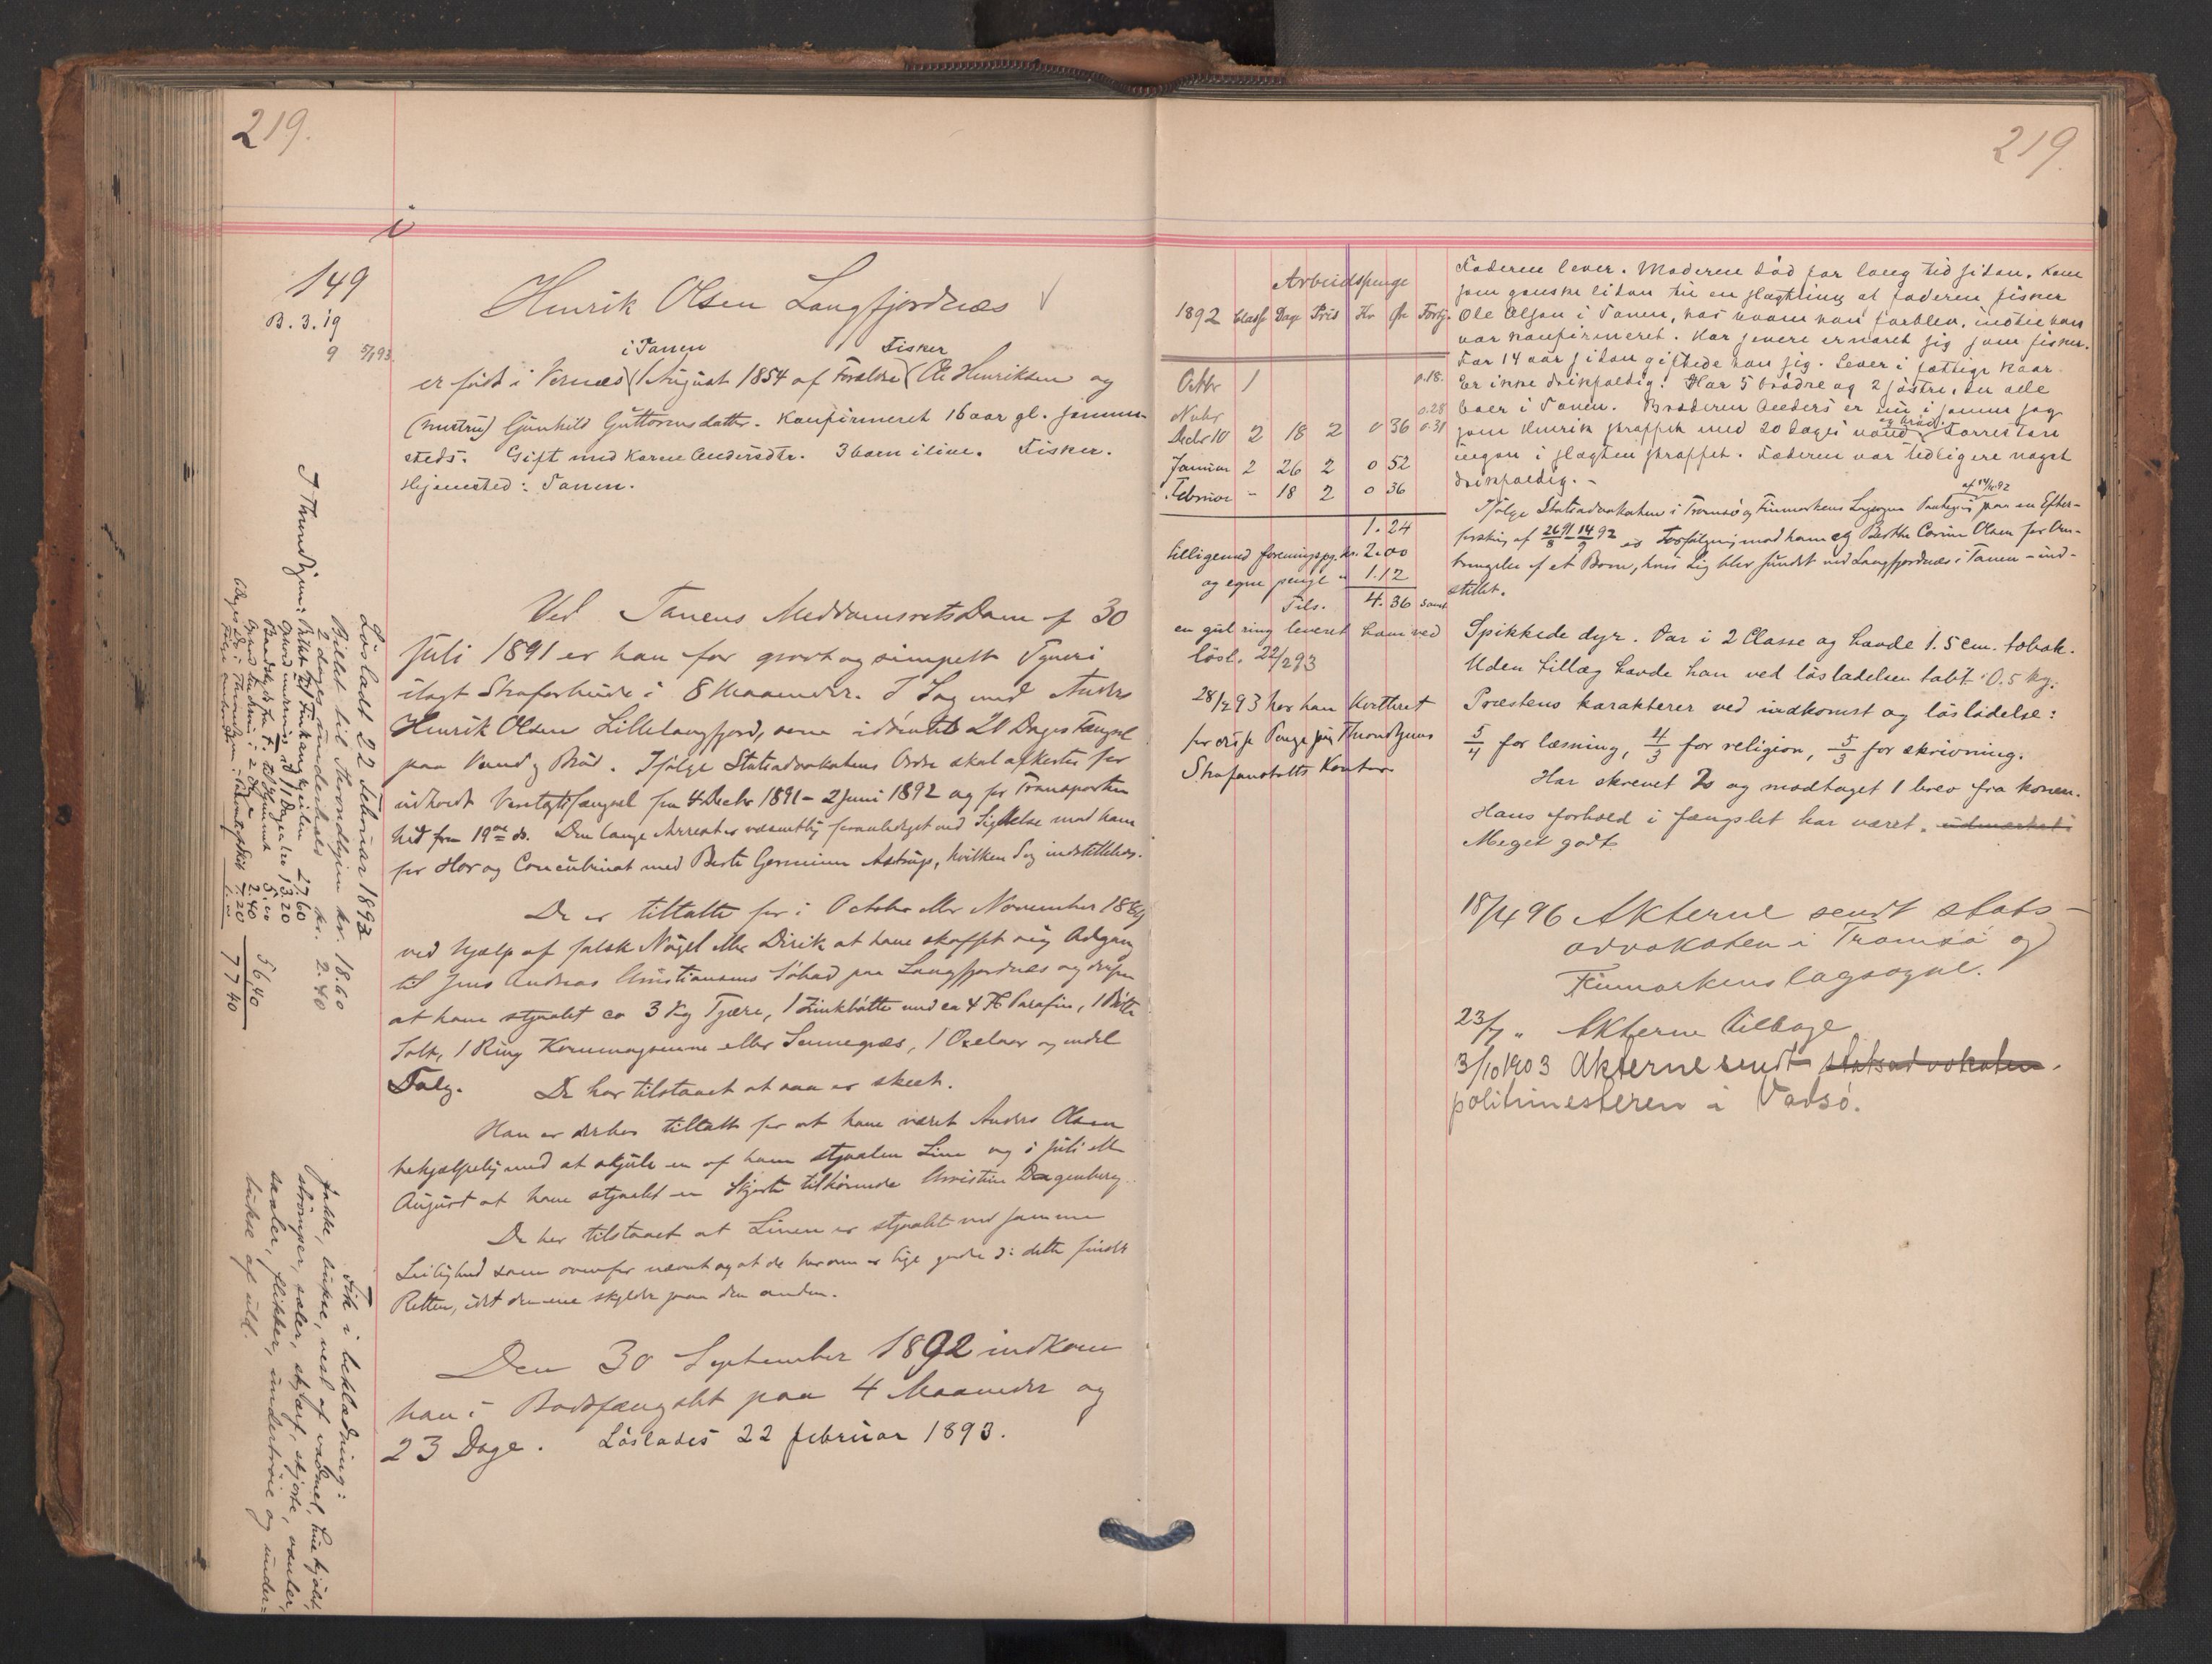 219.
i
149
B. 3. 19
9 5/1 93.
Henrik Olsen Langfjordnæs
i Tanen Fisker
er født i Vernæs (1 August 1854 af Forældre (Ole Henriksen og
(hustru) Gunhild Guttormsdatter. Konfirmeret 16 aar gl. sammen-
steds. Gift med Karen Andersdtr. 3 barn ilive. Fisker.
Hjemsted: Tanen.
Ved Tanens Meddomsrets Dom af 30
Juli 1891 er han for grovt og simpelt Tyveri
ilagt Strafarbeide i 8 Maaneder. I Sag med Anders
Henrik Olsen Lillelangfjord, som idømtes 20 Dages Fængsel
paa Vand og Brød. Ifølge Statsadvokatens Ordre skal afkortes for
udholdt Varetægtsfængsel fra 4 Decbr 1891 - 2 Juni 1892 og for Transporten
hid fra 19de ds. Den lange Arrest er væsentlig foranlediget ved Sigtelse mod ham
for Hor og Concubinat med Berte Astrup, hvilken Sag indstilledes.
De er tiltalte for i October eller November 1889
ved Hjælp af falsk Nøgel eller Dirik at have skaffet sig Adgang
til Jens Andreas Christiansens Søbod paa Langfjordnæs og derfra
at have stjaalet ca 3 Kg Tjære, 1 Zinkbøtte med ca 4 Parafin, 1 Bøtte
Salt, 1 Ring Kommagsenne eller Sennegræs, 1 Oxelaar og endel
Talg. De har tilstaaet at saa er skeet.
Han er derhos tiltalt for at have været Anders Olsen
behjælpelig med at skjule en af ham stjaalen Line og i Juli eller
August at have stjaalet en Skjorte tilhørende Christine Dagenberg.
De har tilstaaet at Linen er stjaalet ved samme
Leilighed som ovenfor nævnt og at de herom er lige gode : dette finder
Retten, idet den ene skylder paa den anden.
Den 30 September 1892 indkom
han i Bodsfængslet paa 4 Maaneder og
23 Dage. Løslades 22 februar 1893.
Løsladt 22 februar 1893
Billet til Throndhjem kr. 18.60
2 dages underhold kr. 2.40
I Throndhjem: Billet til Finkongkeilen 27.60
13.20
5.00
2.40
7.20
56 40
77 40
Fik i beklædning:
jakke, bukse, vest af vadmel, hue kjøbt,
strømper, sæler, skjærf, skjorte, vanter,
saaler, flikker, undertrøie og under-
bukse af uld.
219.
Arbeidspenge
1892 Classe Dage Pris Kr Ør Fortj.
Octbr 1 0.18.
Novbr 0.28
Decbr 10 2 18 2 0 36 0.31
Januar 2 26 2 0 52
Februar - 18 2 0 36
1.24
tilligemed foreningspg. kr. 2.00
og egne penge " 1.12
Tils. 4.36 samt
en gul ring leveret ham ved
løsl. 22/2 93
28/2 93 har han kvitteret
for disse Penge paa Throndhjems
Strafanstalts Kontor
Faderen lever. Moderen død for lang tid siden. Kom
som ganske liten til en slægtning af faderen fisker
Ole Olsen i Tanen, hos hvem han forblev, indtil han
var konfirmeret. Har senere ernæret sig som fisker.
For 14 aar siden giftede han sig. Lever i fattige kaar
Er ikke drikfældig. Har 5 brødre og 2 søstre, der alle
boer i Tanen. Broderen Anders er nu i samme sag
og brød.
som Henrik straffet med 20 dages vand Forresten
ingen i slægten straffet. Faderen var tidligere noget
drikfældig. -
af 14/9 92
Ifølge Statsadvokaten i Tromsø og Finmarkens Lagsogns Paategning paa en Efter-
forskning af 26/8 91 - 14/9 92 er Forfølgning mod ham og Berthe Carine Olsen for Om-
bringelse af et Barn, hvis Lig blev fundet ved Langfjordnæs i Tanen - ind-
stillet.
Spikkede dyr. Var i 2 Classe og havde 1.5 cm. tobak.
Uden tillæg havde han ved løsladelsen tabt 0.5 kg.
Præstens karakterer ved indkomst og løsladelse:
5/4 for læsning, 4/3 for religion, 5/3 for skrivning.
Har skrevet 2 og modtaget 1 brev fra konen.
Hans forhold i fængslet har været. udmærket.
Meget godt
18/4 96 Akterne sendt stats-
advokaten i Tromsø og
Finmarkens lagsogne.
23/7 " Akterne tilbage
3/10 1903 Akterne sendt statsadvokaten.
politimesteren i Vadsø.